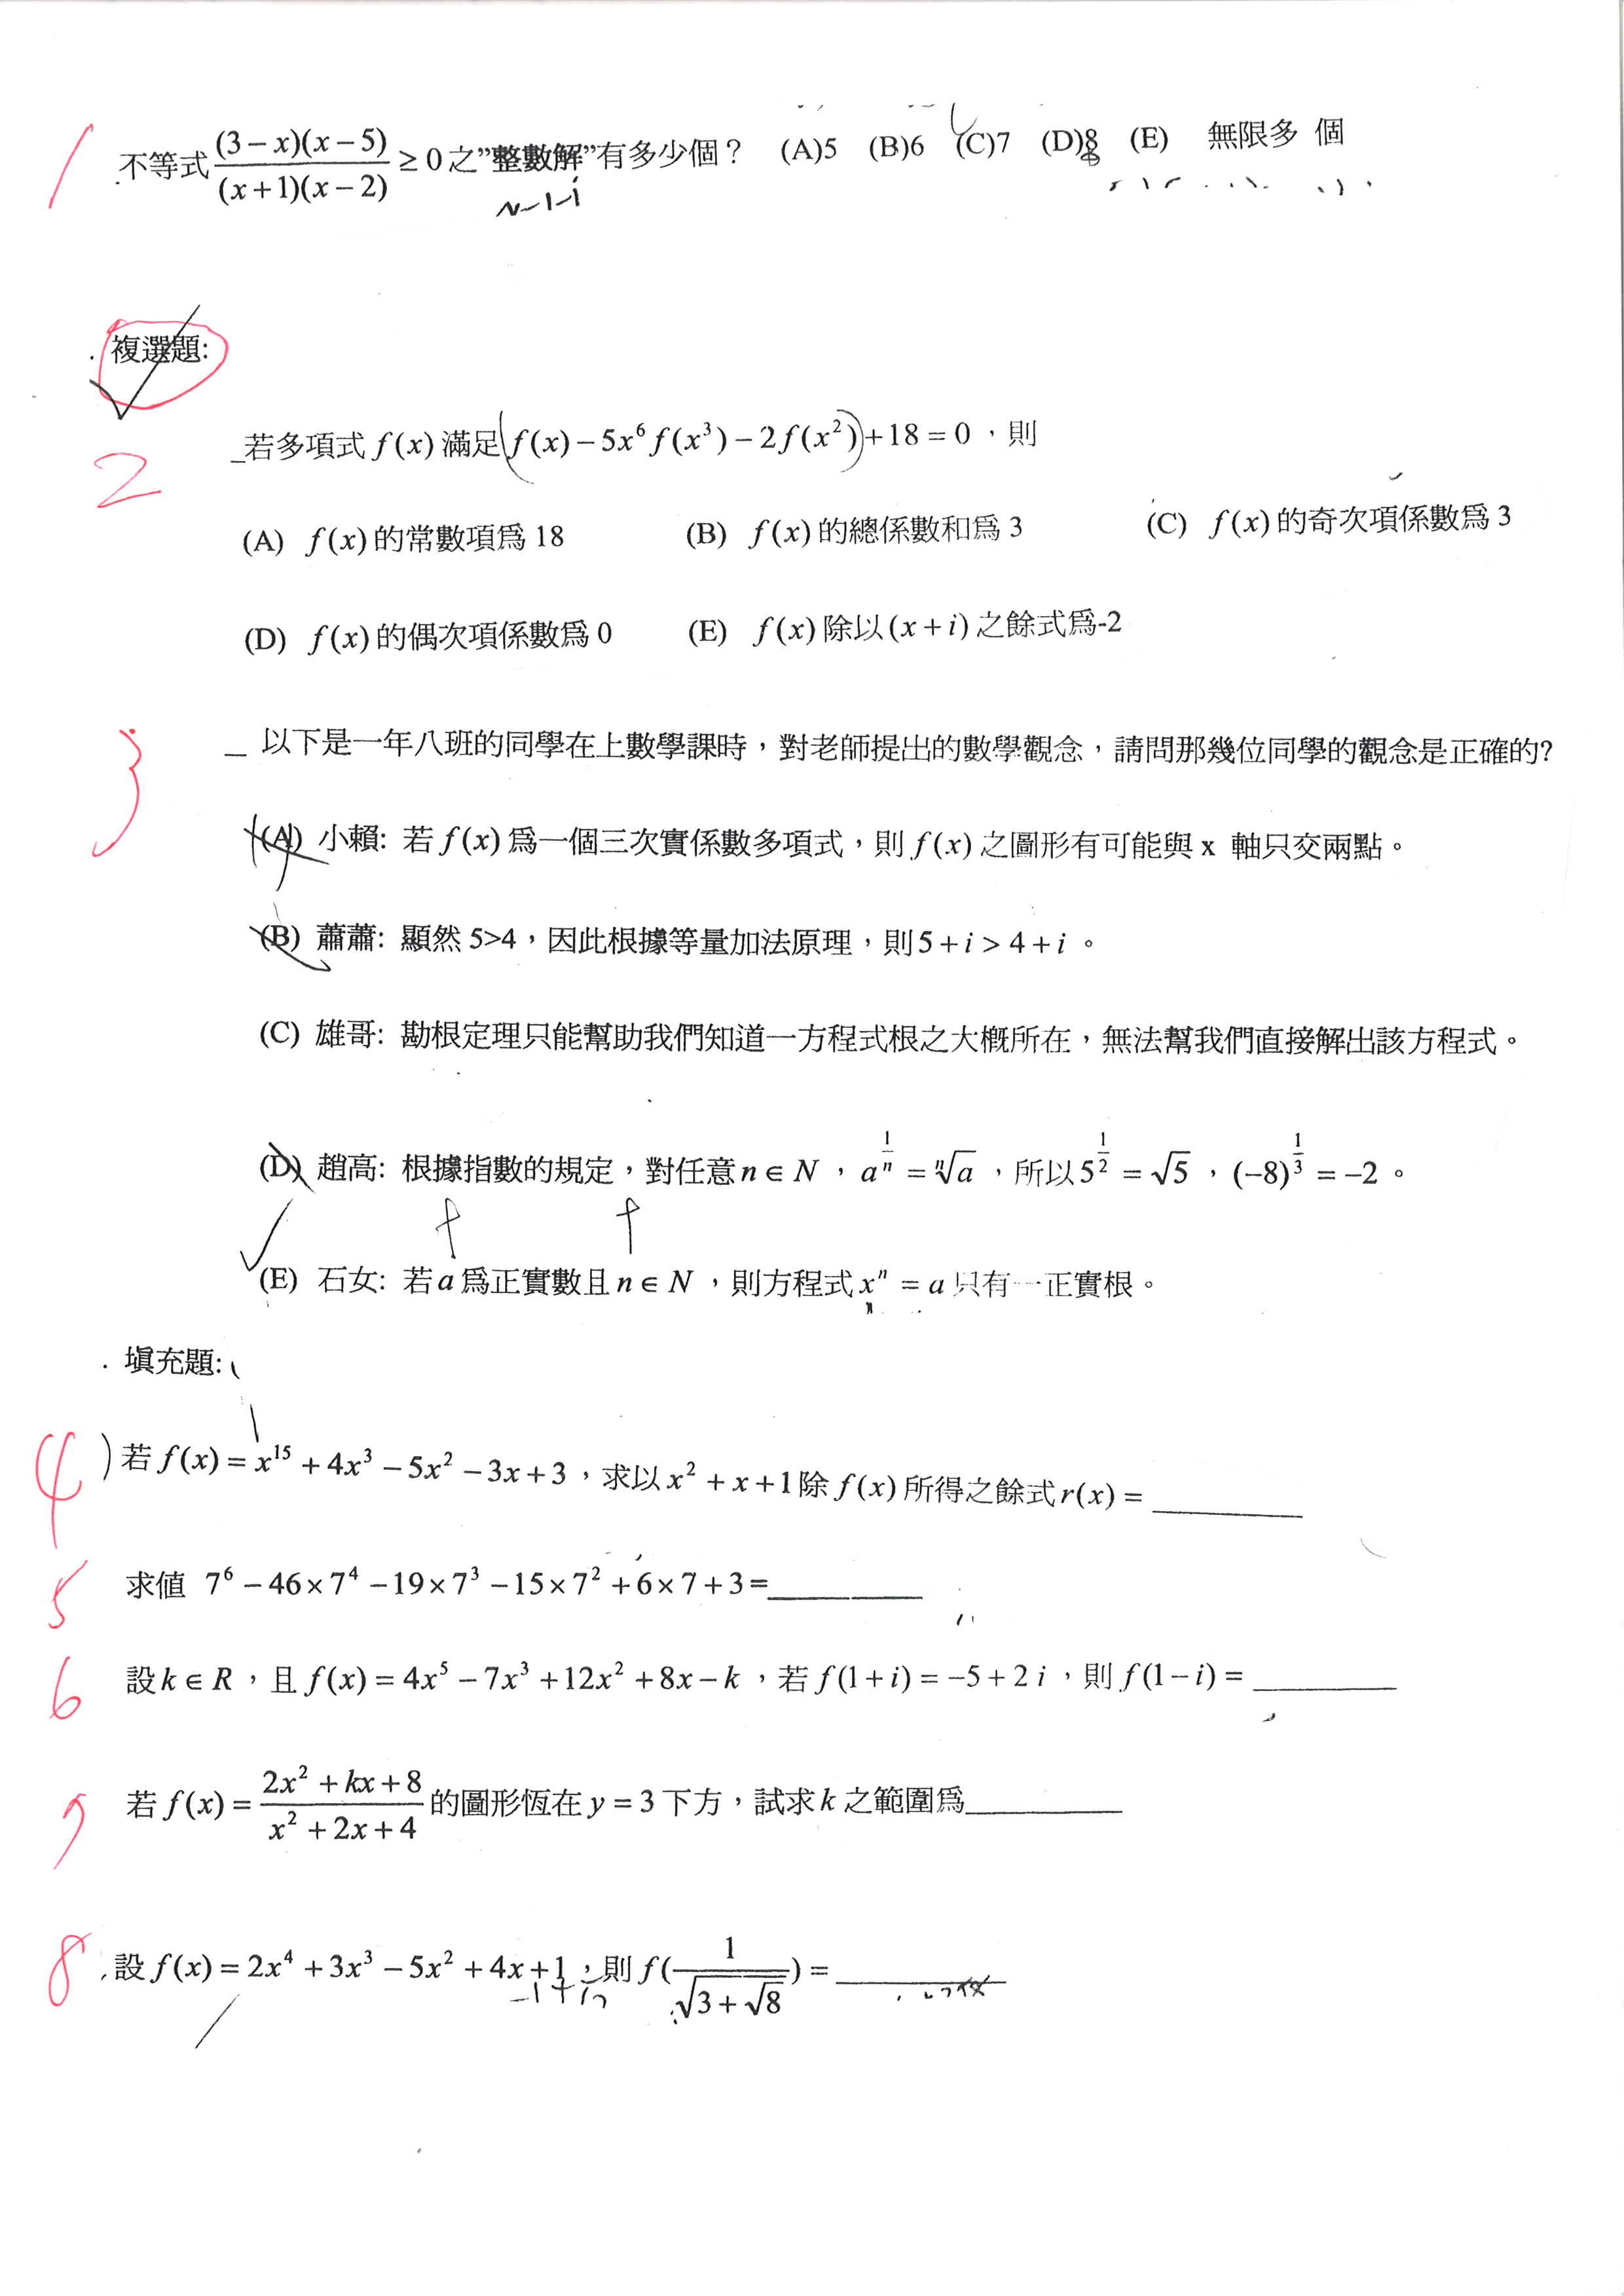 1 不等式 (3－x)(x－5)/(x＋1)(x－2) ≥ 0 之”整數解”有多少個？ (A)5 (B)6 (C)7 (D)8 (E) 無限多 個
複選題:
2 若多項式 f(x) 滿足 f(x)－5x⁶f(x³)－2f(x²)＋18＝0，則
(A) f(x) 的常數項爲 18 (B) f(x) 的總係數和爲 3 (C) f(x) 的奇次項係數爲 3
(D) f(x) 的偶次項係數爲 0 (E) f(x) 除以 (x＋i) 之餘式爲-2
3 以下是一年八班的同學在上數學課時，對老師提出的數學觀念，請問那幾位同學的觀念是正確的?
(A) 小賴: 若 f(x) 爲一個三次實係數多項式，則 f(x) 之圖形有可能與 x 軸只交兩點。
(B) 蕭蕭: 顯然 5>4，因此根據等量加法原理，則 5＋i > 4＋i。
(C) 雄哥: 勘根定理只能幫助我們知道一方程式根之大概所在，無法幫我們直接解出該方程式。
(D) 趙高: 根據指數的規定，對任意 n∈N，a^(1/n) = ⁿ√a，所以 5^(1/2) = √5，(−8)^(1/3) = −2。
(E) 石女: 若 a 爲正實數且 n∈N，則方程式 xⁿ = a 只有一正實根。
填充題:
4 若 f(x) = x¹⁵ + 4x³ − 5x² − 3x + 3，求以 x² + x + 1 除 f(x) 所得之餘式 r(x) =
5 求値 7⁶ − 46×7⁴ − 19×7³ − 15×7² + 6×7 + 3 =
6 設 k∈R，且 f(x) = 4x⁵ − 7x³ + 12x² + 8x − k，若 f(1+i) = −5 + 2i，則 f(1−i) =
7 若 f(x) = (2x² + kx + 8)/(x² + 2x + 4) 的圖形恆在 y = 3 下方，試求 k 之範圍爲
8 設 f(x) = 2x⁴ + 3x³ − 5x² + 4x + 1，則 f(1/√(3+√8)) =